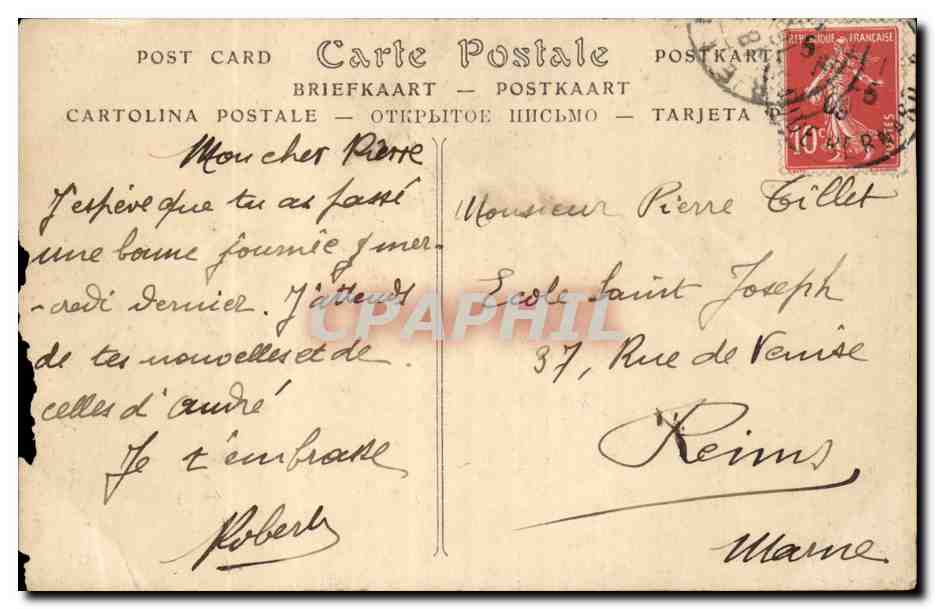 POST CARD Carte Postale POSTKARTE
BRIEFKAART — POSTKAART
CARTOLINA POSTALE — ОТКРЫТОЕ ПИСЬМО — TARJETA
REPUBLIQUE FRANÇAISE
10c
Mon cher Pierre
J'espère que tu as passé
une bonne journée mer-
-credi dernier. J'attends
de tes nouvelles et de
celles d'André
Je t'embrasse
Robert
Monsieur Pierre Tillet
Ecole Saint Joseph
37, Rue de Venise
Reims
Marne
CPAPHIL